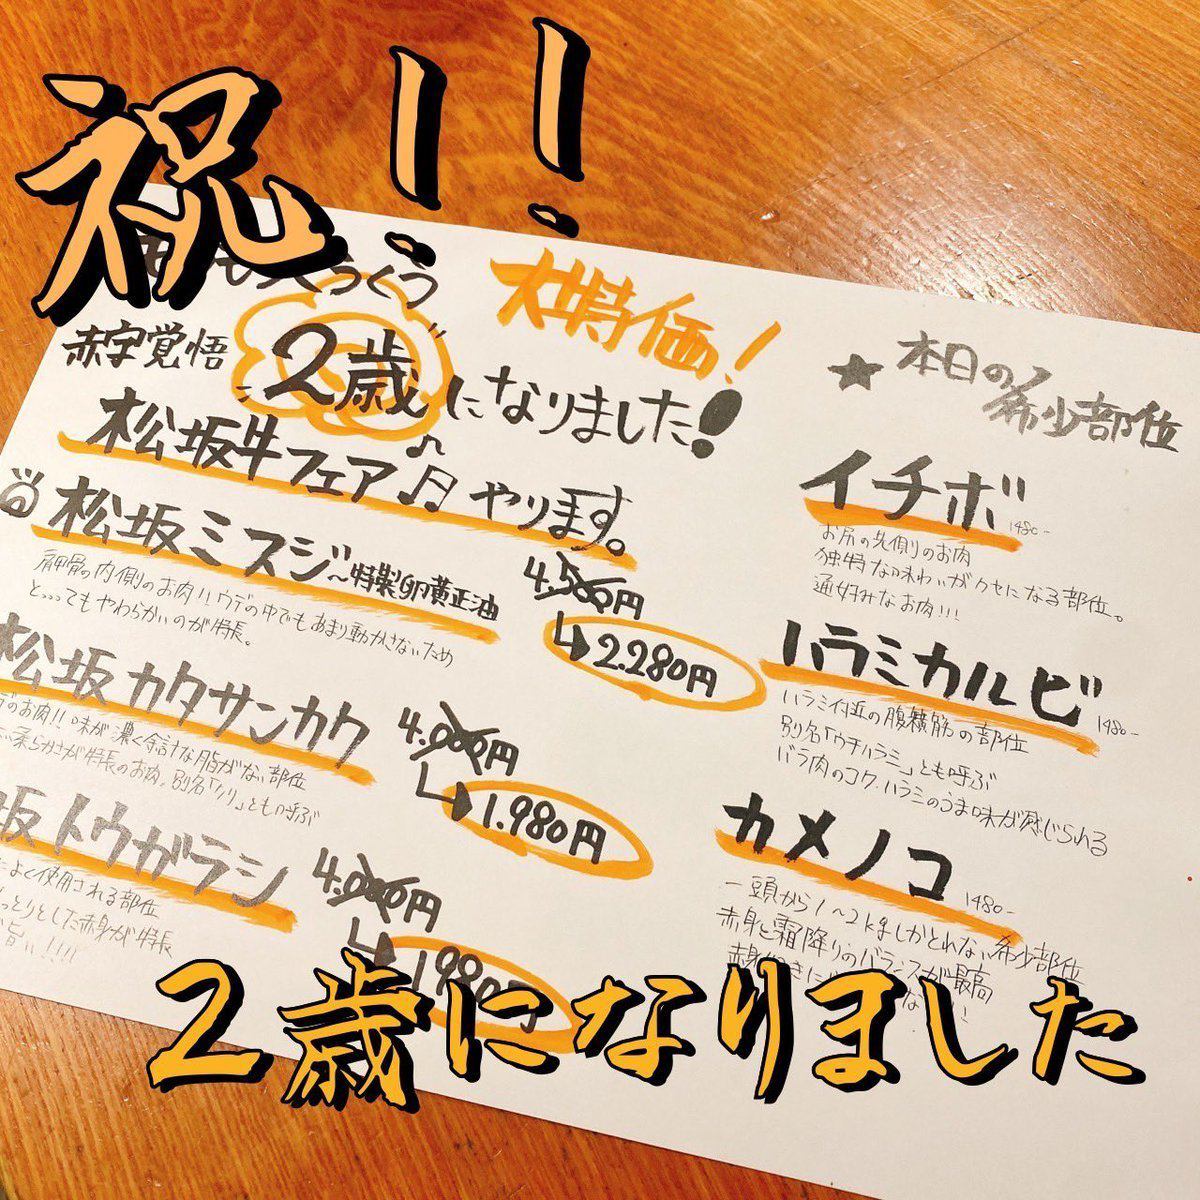 祝!!
大特価!
赤字覚悟
2歳になりました!
松坂牛フェア♪♬やります。
松坂ミスジ~特製卵黄正油
4.500円
2.280円
肩甲骨の内側のお肉!!ウデの中でもあまり動かさないため
と…てもやわらかいのが特長。
松坂カタサンカク
4.000円
1.980円
デのお肉!!味が濃く余計な脂がない部位
柔らかさが特長のお肉。別名「クリ」とも呼ぶ
坂トウガラシ
4.000円
1.980円
よく使用される部位
っとりとした赤身が特長
旨い!!!!
★本日の希少部位
イチボ 1480-
お尻の先側のお肉
独特な味わいがクセになる部位。
通好みなお肉!!!
ハラミカルビ 1480-
ハラミ付近の腹横筋の部位
別名「ウチハラミ」とも呼ぶ
バラ肉のコク、ハラミのうま味が感じられる
カメノコ 1480-
一頭から1~2kgしかとれない希少部位
赤身と霜降りのバランスが最高
2歳になりました